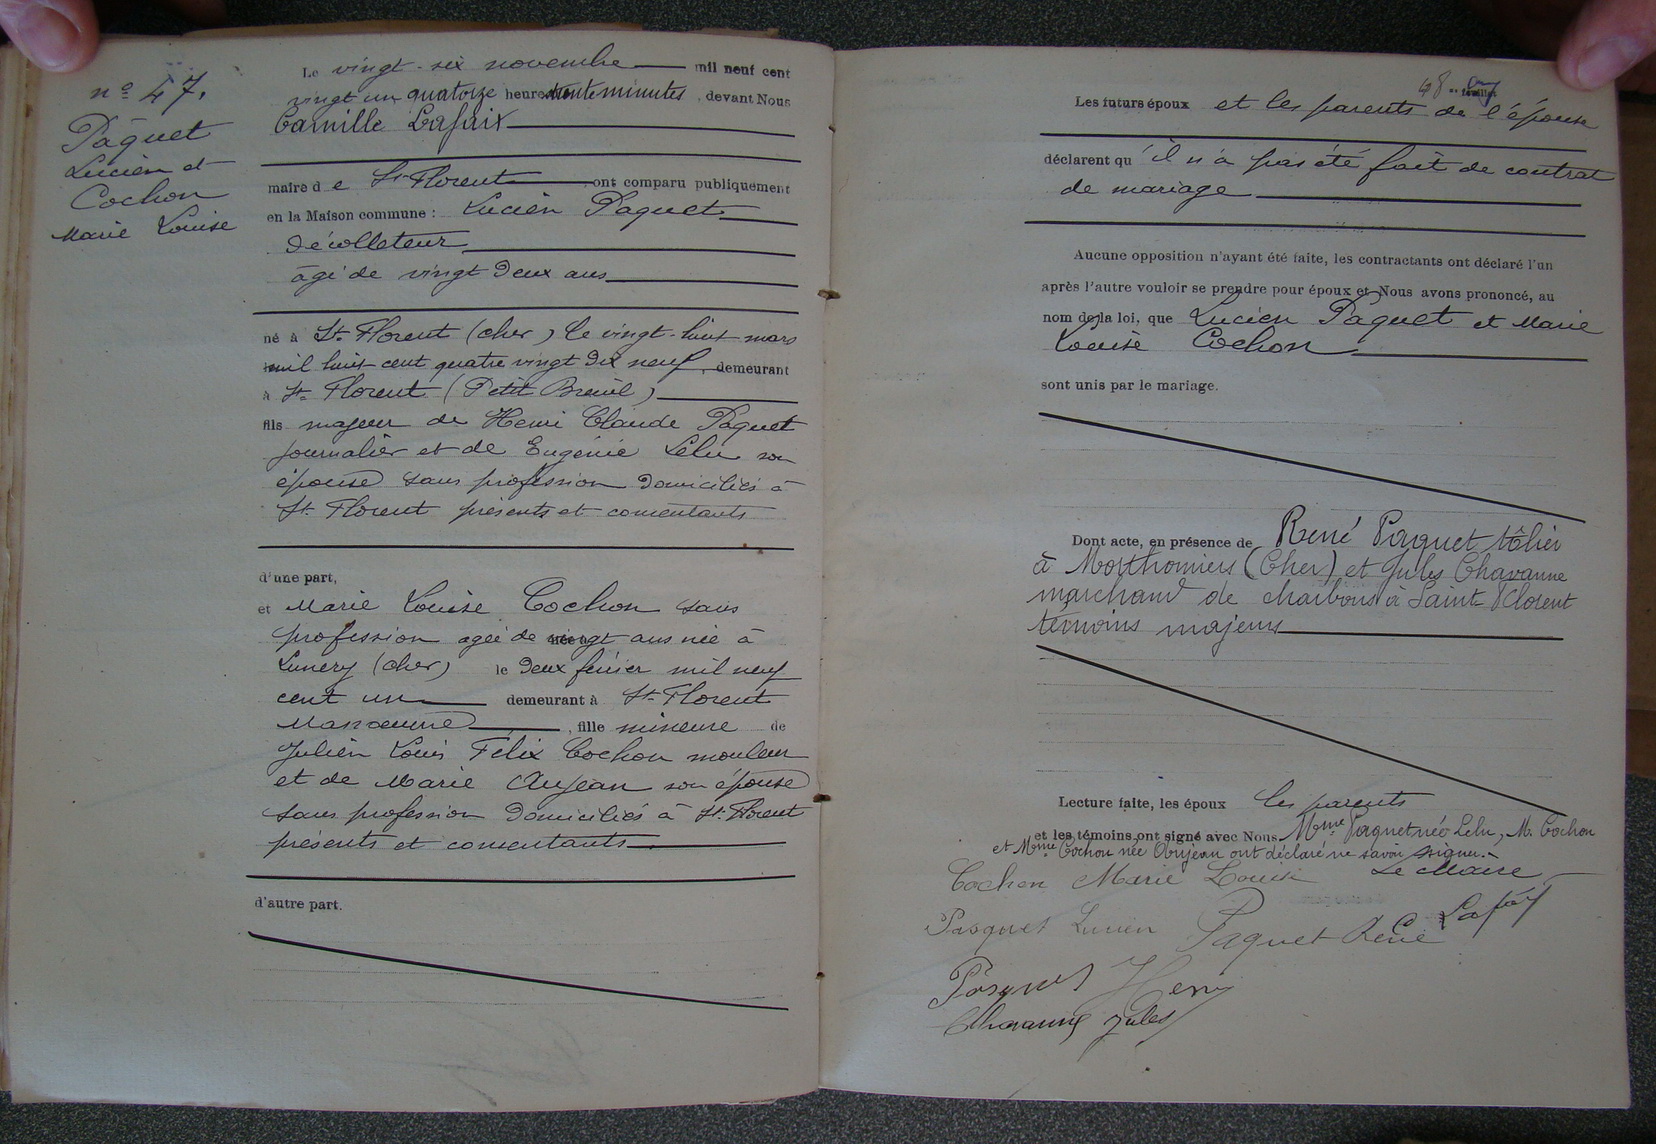 n° 47.
Pâquet
Lucien et
Cochon
Marie Louise
Le vingt-six novembre mil neuf cent
vingt un quatorze heures trente minutes, devant Nous
Camille Lafaix
maire de St Florent ont comparu publiquement
en la Maison commune : Lucien Paquet
décolleteur
âgé de vingt deux ans
né à St Florent (cher) le vingt-huit mars
mil huit cent quatre vingt dix neuf, demeurant
à St Florent (Petit Breuil)
fils majeur de Henri Claude Paquet
journalier et de Eugénie Lelu son
épouse sans profession domiciliés à
St Florent présents et consentants
d'une part,
et Marie Louise Cochon sans
profession agée de vingt ans née à
Lunery (cher) le deux février mil neuf
cent un demeurant à St Florent
Massoeuvre, fille mineure de
Julien Louis Félix Cochon mouleur
et de Marie Aujean son épouse
sans profession domiciliés à St Florent
présents et consentants
d'autre part.
48 me feuillet
Les futurs époux et les parents de l'épouse
déclarent qu'il n'a pas été fait de contrat
de mariage
Aucune opposition n'ayant été faite, les contractants ont déclaré l'un
après l'autre vouloir se prendre pour époux et Nous avons prononcé, au
nom de la loi, que Lucien Paquet et Marie
Louise Cochon
sont unis par le mariage.
Dont acte, en présence de René Paquet tôlier
à Morthomiers (Cher) et Jules Chavanne
marchand de charbons à Saint Florent
témoins majeurs
Lecture faite, les époux les parents
et les témoins ont signé avec Nous Mme Paquet née Lelu, M. Cochon
et Mme Cochon née Aujean ont déclaré ne savoir signer.
Cochon Marie Louise Le Maire
Pasquet Lucien Paquet René Lafaix
Pasquet Henri
Chavanne Jules